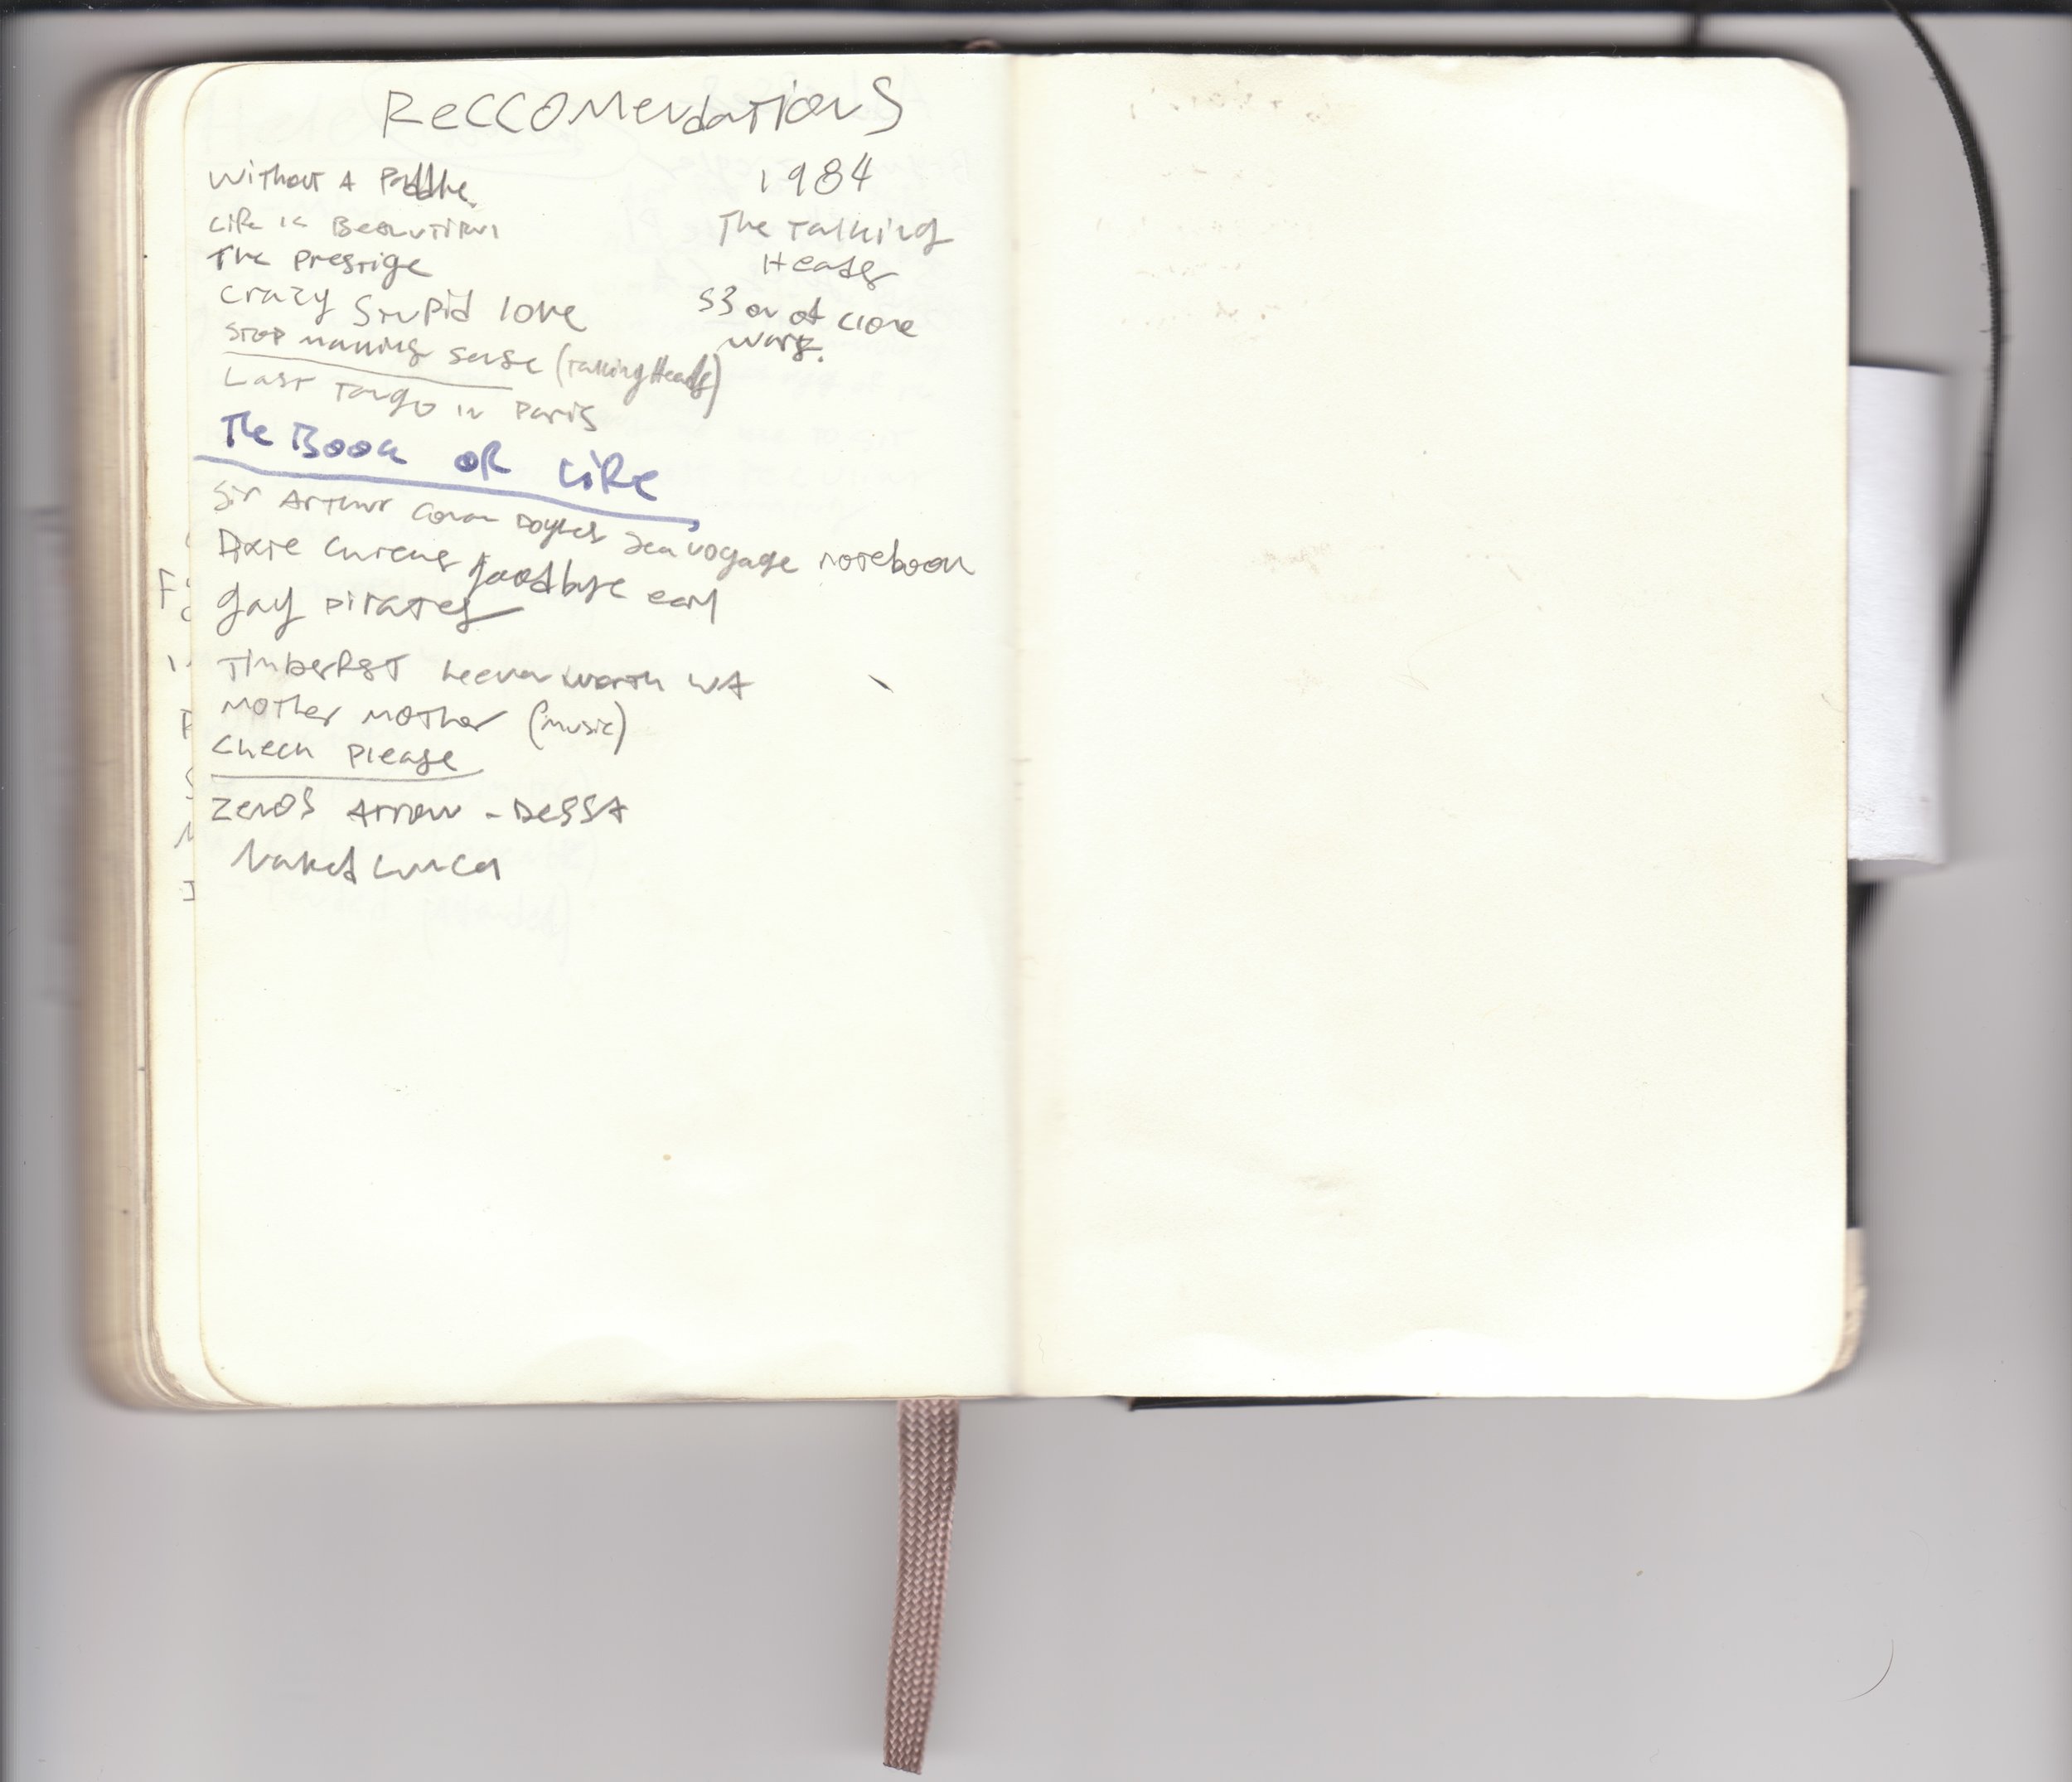 ReCCOMendations
Without A Paddle
Life is Beautiful
The Prestige
Crazy Stupid love
Stop making sense (Talking Heads)
Last Tango in Paris
The Book of Life
Sir Arthur Conan Doyles Sea voyage notebook
Dixie Chicks goodbye earl
gay pirates
Timberfest Leavenworth WA
Mother Mother (music)
Check Please
Zeno's Arrow - DESSA
Naked Lunch
1984
The Talking
Heads
S3 on of clone
wars.